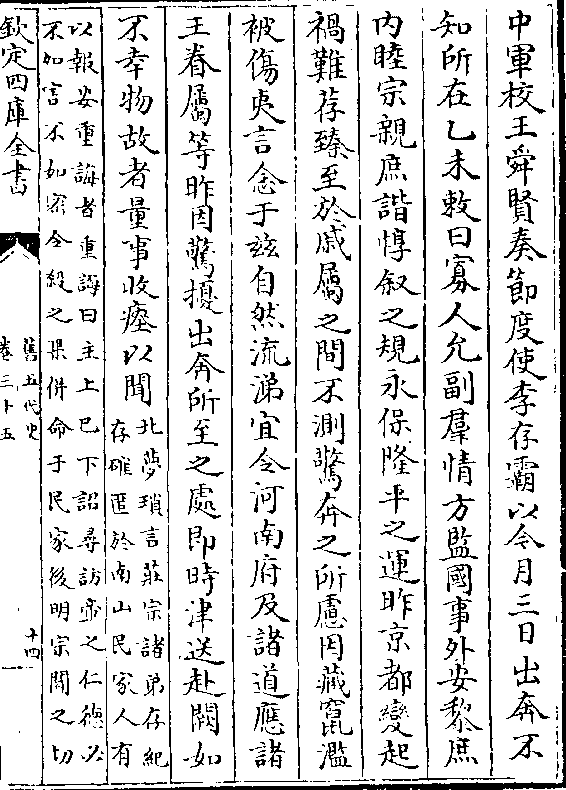 中軍校王舜賢奏節度使李存霸以今月三日出奔不
知所在乙未敕曰寡人允副羣情方監國事外安黎庶
内睦宗親庶諧惇叙之規永保隆平之運昨京都變起
禍難荐臻至於戚屬之間不測驚奔之所慮因藏竄濫
被傷夷言念于兹自然流涕宜令河南府及諸道應諸
王眷屬等昨因驚擾出奔所至之處即時津送赴闕如
不幸物故者量事收瘞以聞
北夢瑣言莊宗諸弟存紀
存確匿於南山民家人有
以報安重誨者重誨曰主上已下詔尋訪帝之仁德必
不加害不如密令殺之果併命于民家後明宗聞之切
欽定四庫全書
舊五代史
卷三十五
十四